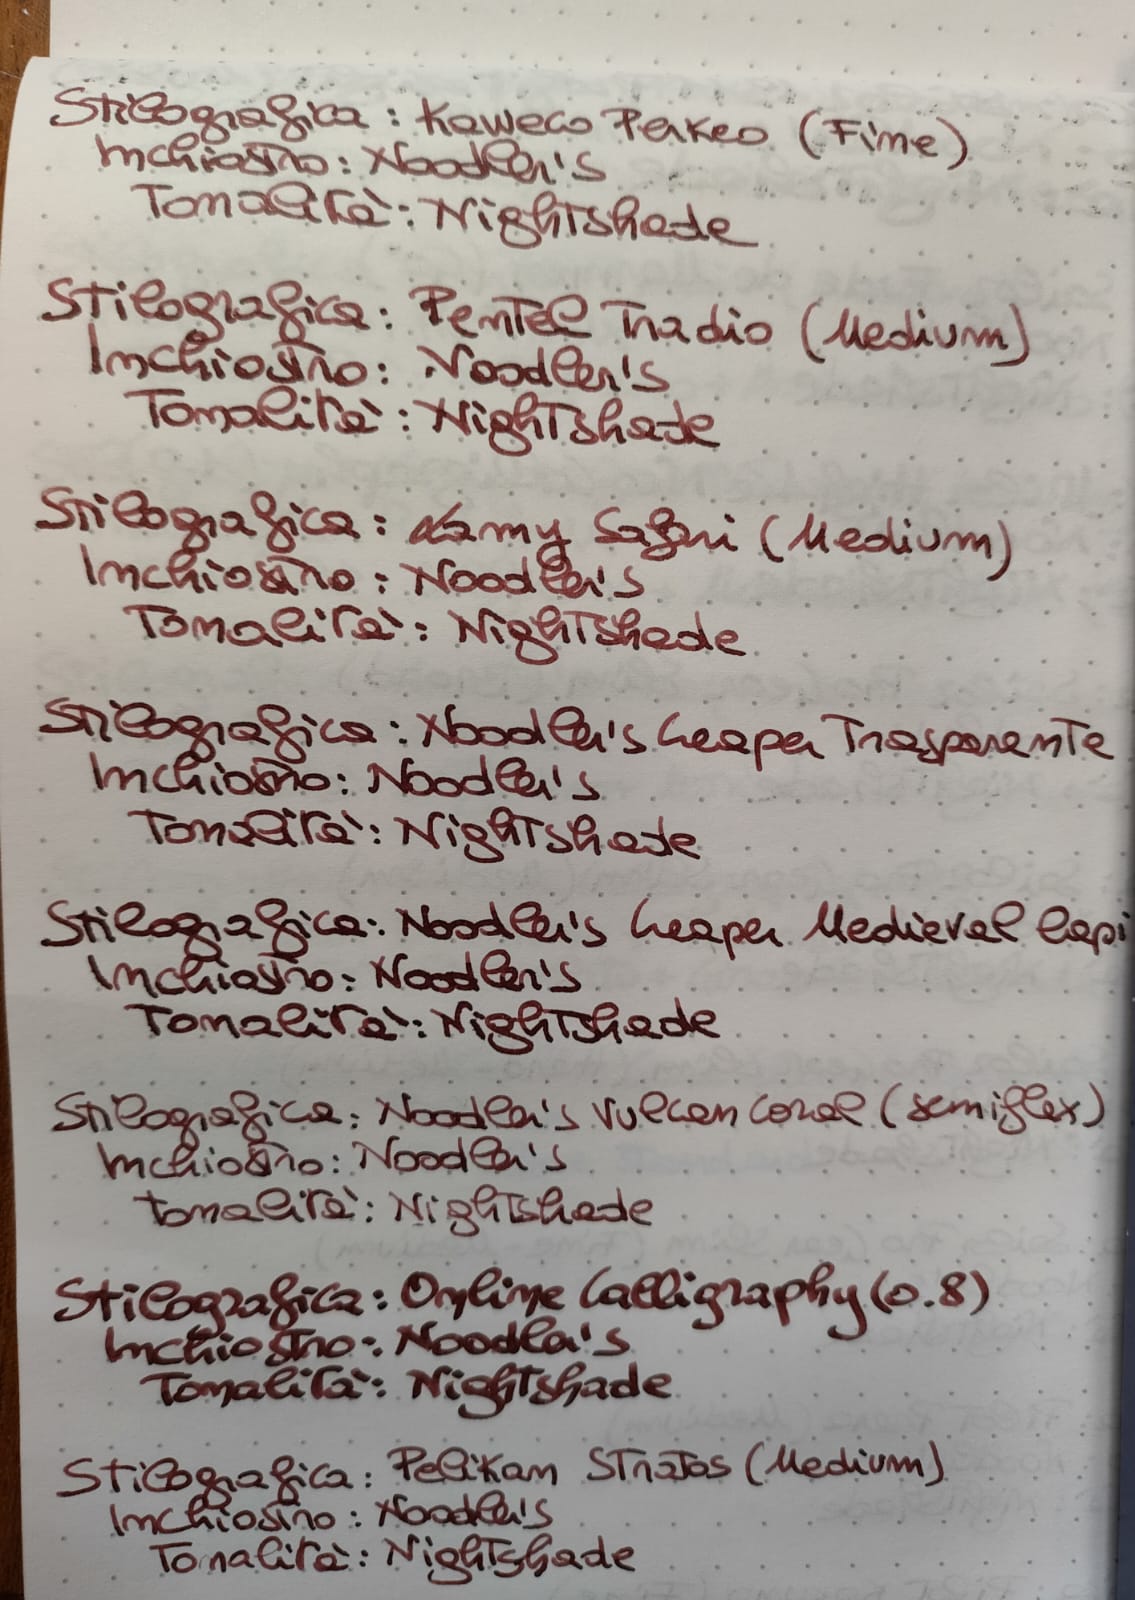 Stilografica: Kaweco Perkeo (Fine)
Inchiostro: Noodler's
Tonalità: Nightshade
Stilografica: Pentel Tradio (Medium)
Inchiostro: Noodler's
Tonalità: Nightshade
Stilografica: Lamy Safari (Medium)
Inchiostro: Noodler's
Tonalità: Nightshade
Stilografica: Noodler's Creaper Trasparente
Inchiostro: Noodler's
Tonalità: Nightshade
Stilografica: Noodler's Creaper Medieval Lapi
Inchiostro: Noodler's
Tonalità: Nightshade
Stilografica: Noodler's Vulcan Coral (semiflex)
Inchiostro: Noodler's
tonalità: Nightshade
Stilografica: Online Calligraphy (0.8)
Inchiostro: Noodler's
Tonalità: Nightshade
Stilografica: Pelikan Stratos (Medium)
Inchiostro: Noodler's
Tonalità: Nightshade